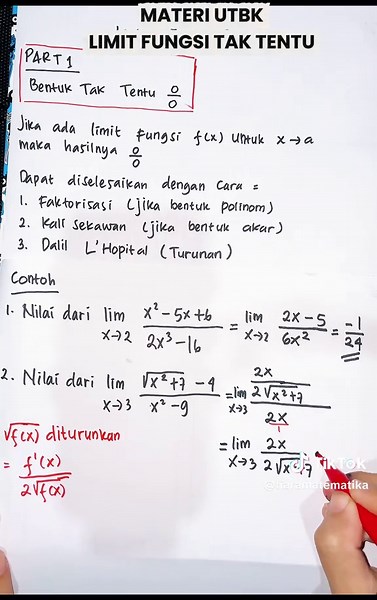 MATERI UTBK
LIMIT FUNGSI TAK TENTU
PART 1
Bentuk Tak Tentu 0/0
Jika ada limit fungsi f(x) untuk x→a
maka hasilnya 0/0
Dapat diselesaikan dengan cara =
1. Faktorisasi (jika bentuk polinom)
2. Kali sekawan (jika bentuk akar)
3. Dalil L'Hopital (Turunan)
Contoh
1. Nilai dari lim x→2 (x² - 5x + 6)/(2x³ - 16) = lim x→2 (2x - 5)/(6x²) = -1/24
2. Nilai dari lim x→3 (√(x² + 7) - 4)/(x² - 9) = lim x→3 (2x/(2√(x² + 7)))/(2x/1)
= lim x→3 2x/(2√(x² + 7
√f(x) diturunkan
= f'(x)/(2√f(x))
TikTok